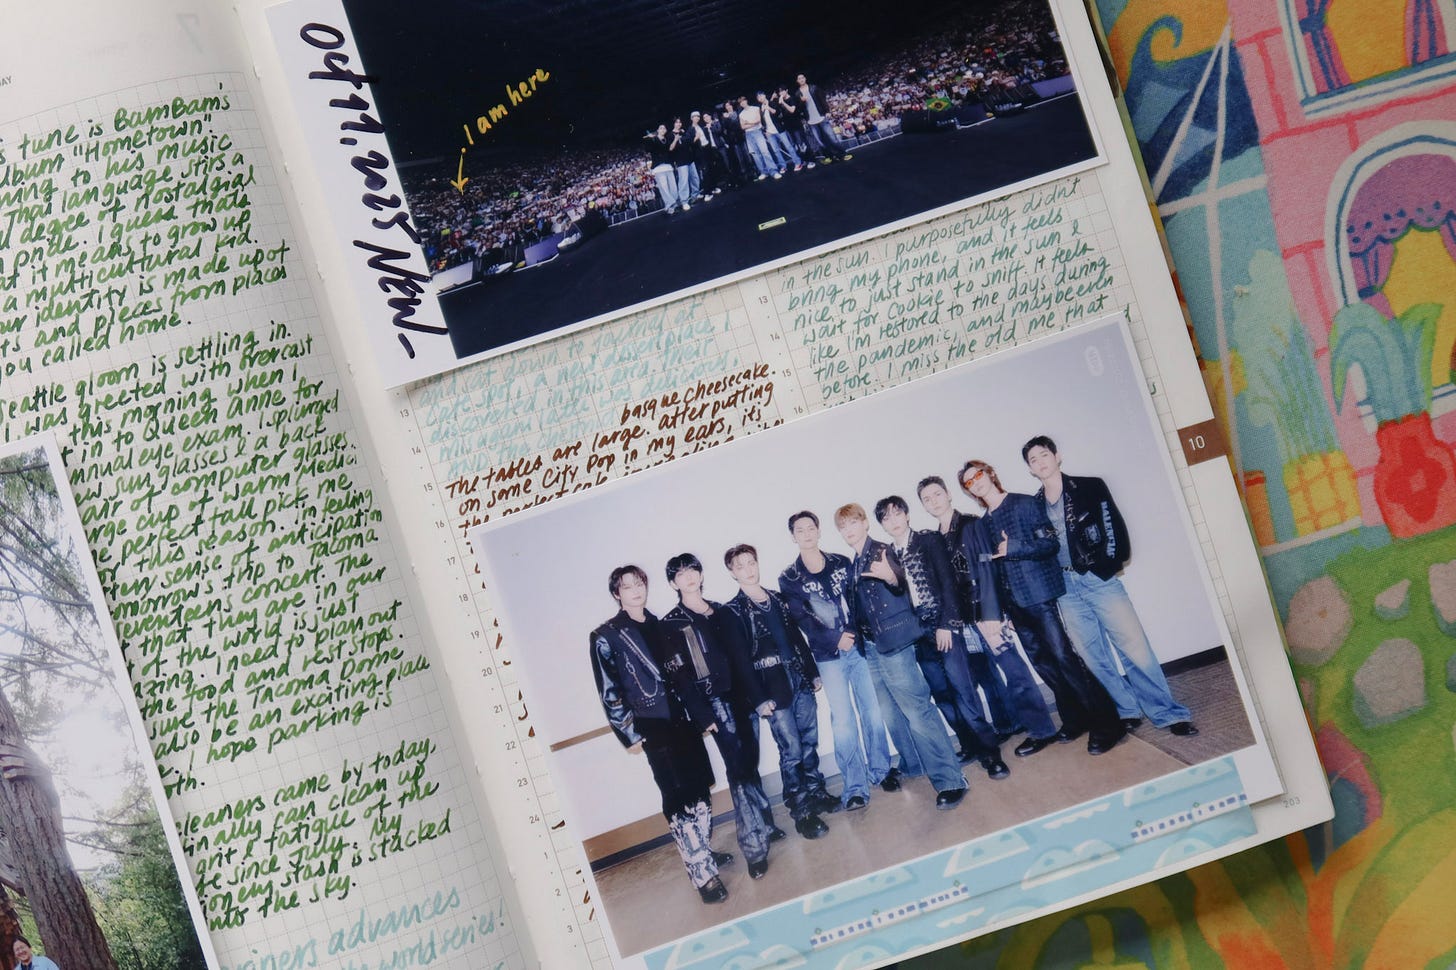 s tune is BamBam's
album "Hometown".
ning to his music
That language stirs a
degree of nostalgia
pride. I guess thats
at it means to grow up
a multicultural kid.
ur identity is made up of
ts and pieces from places
you called home.
Seattle gloom is settling in.
I was greeted with overcast
this morning when I
t in to Queen Anne for
nnual eye exam. I splurged
w sun glasses & a back
air of computer glasses.
arge cup of warm
e perfect fall pick me
or this season. In feeling
very sense of anticipation
omorrow's trip to Tacoma
seventeens concert. The
t that they are in our
of the world is just
azing. I need to plan out
the food and rest stops.
sure the Tacoma Dome
also be an exciting place
I hope parking is
th.
cleaners came by today,
inally can clean up
grit & fatigue of the
fe since July. My
ionery stash is stacked
into the sky.
riners advances
world series!
Oct 11, 2025 New_
I am here
and sat down to journal at
Cafe spot, a new dessert place I
discovered in this area. Their
was delicious,
AND the
basque cheesecake.
The tables are large. after putting
on some City Pop in my ears, it's
the perfect
13
14
15
16
17
18
19
20
21
22
23
24
1
2
3
in the sun. I purposefully didn't
bring my phone, and it feels
nice to just stand in the sun &
wait for Cookie to sniff. It feels
like I'm restored to the days during
the pandemic, and maybe even
before. I miss the old me that
13
14
15
16
10
BALENCIAG
203